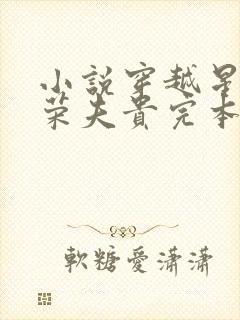 小說穿越早
榮夫貴完本
軟糖愛瀟瀟